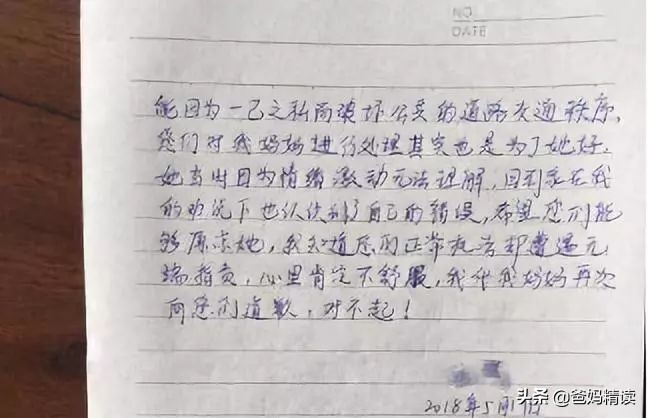 NO.
DATE
能因为一己之私而破坏公共的道路交通秩序,
您们对我妈妈进行处理其实也是为了她好,
她当时因为情绪激动无法理解,回到家在我
的劝说下也认识到了自己的错误,希望您们能
够原谅她,我知道您们正常执法却遭遇无
端指责,心里肯定不舒服,我代我妈妈再次
向您们道歉,对不起!
2018年5月
头条 @爸妈精读